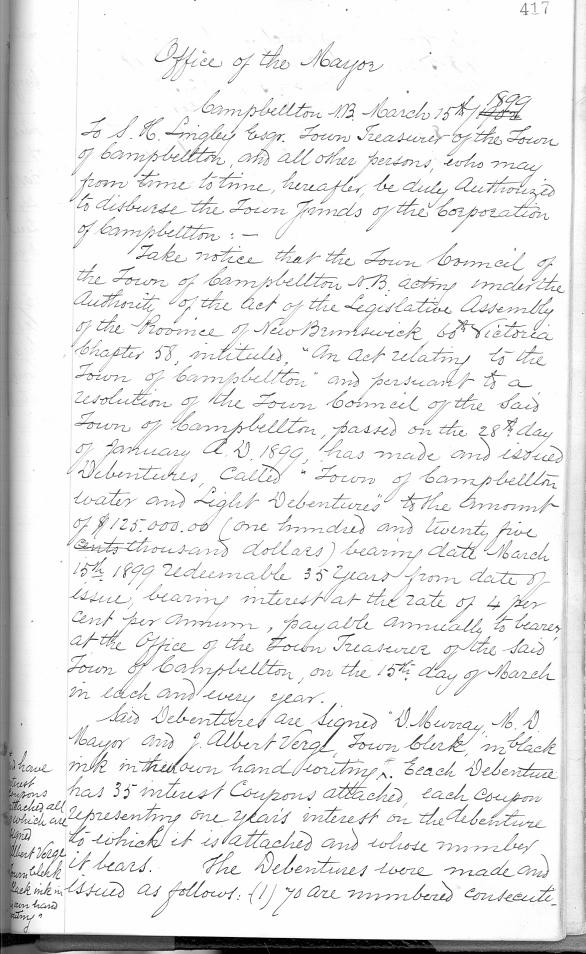 417
Office of the Mayor
Campbellton NB. March 15th 1899
To S. H. Lingley Esqr. Town Treasurer of the Town
of Campbellton, and all other persons, who may
from time to time, hereafter, be duly Authorized
to disburse the Town Funds of the Corporation
of Campbellton : —
Take notice that the Town Council of
the Town of Campbellton N.B. acting under the
Authority of the Act of the Legislative Assembly
of the Province of New Brunswick 60th Victoria
Chapter 58, intituled, "An Act relating to the
Town of Campbellton" and persuant to a
resolution of the Town Council of the Said
Town of Campbellton, passed on the 28th day
of January A.D. 1899, has made and issued
Debentures, Called "Town of Campbellton
water and Light Debentures" to the Amount
of $125.000.00 (one hundred and twenty five
cents thousand dollars) bearing date March
15th 1899 redeemable 35 years from date of
issue, bearing interest at the rate of 4 per
cent per annum, payable annually to bearer,
at the Office of the Town Treasurer of the Said
Town of Campbellton, on the 15th day of March
in each and every year.
Said Debentures are Signed "D. Murray, M. D
Mayor and J. Albert Verge, Town Clerk, in black
ink in their own hand writing ^. Each Debenture
has 35 interest Coupons attached, each Coupon
representing one years interest on the debenture
to which it is attached and whose number
it bears. The Debentures were made and
issued as follows: (1) 70 are numbered consecute-
have
attached all
which are
Albert Verge
Town Clerk
black ink in
own hand
writing"